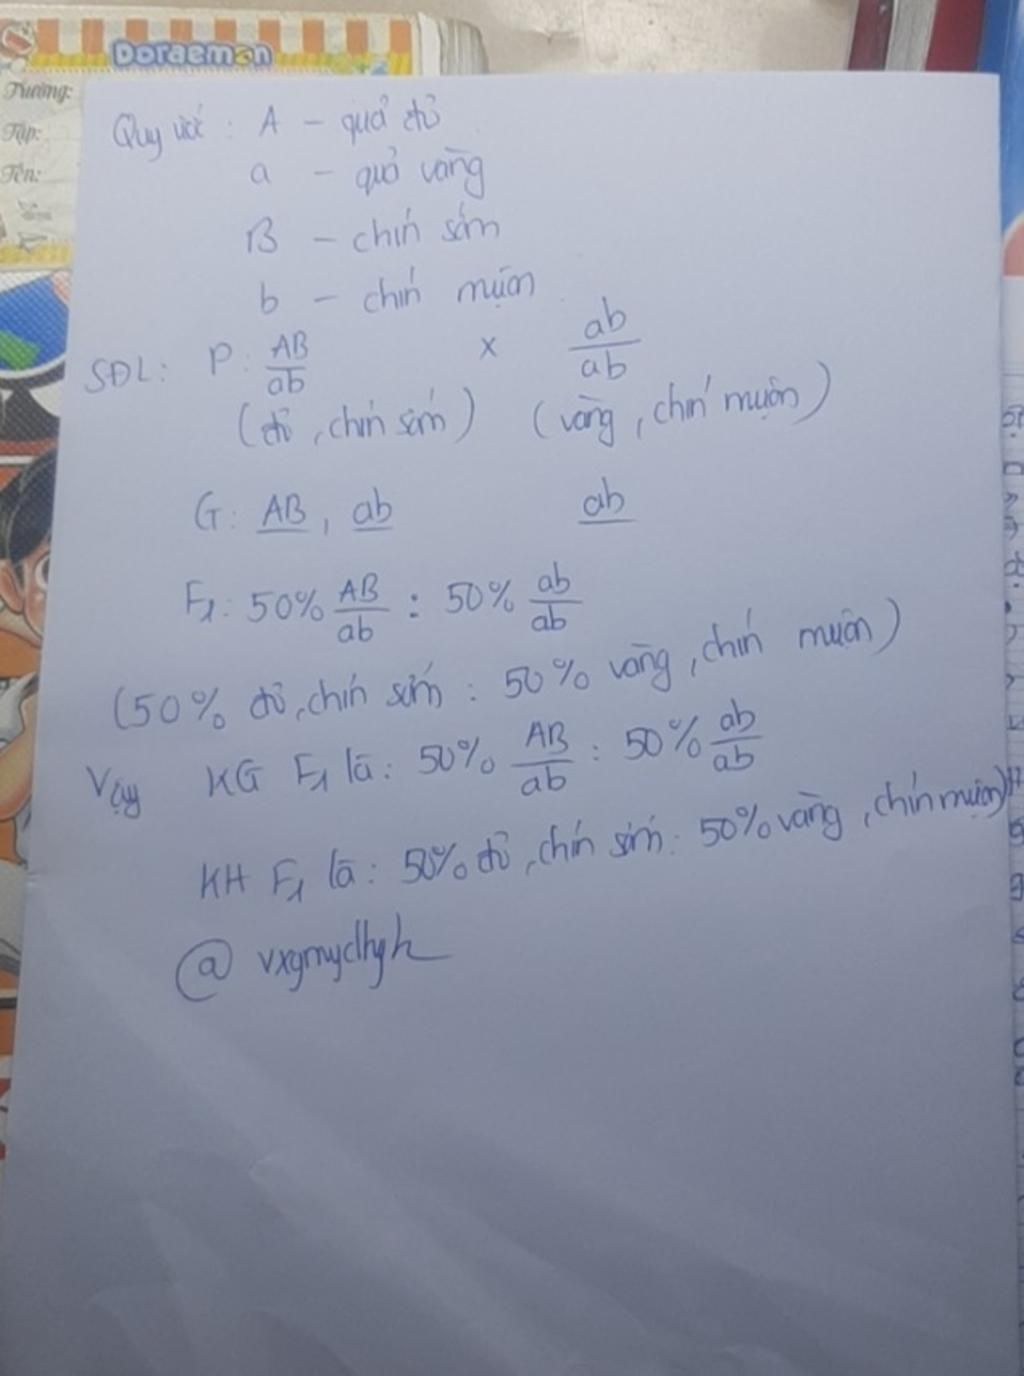 Doraemon
Trường:
Tập:
Tên:
Quy ước : A – quả đỏ
a – quả vàng
B – chín sớm
b – chín muộn
SĐL: P: AB/ab x ab/ab
(đỏ, chín sớm) (vàng, chín muộn)
G: AB, ab ab
F1: 50% AB/ab : 50% ab/ab
(50% đỏ, chín sớm : 50% vàng, chín muộn)
Vậy KG F1 là: 50% AB/ab : 50% ab/ab
KH F1 là: 50% đỏ, chín sớm: 50% vàng, chín muộn)